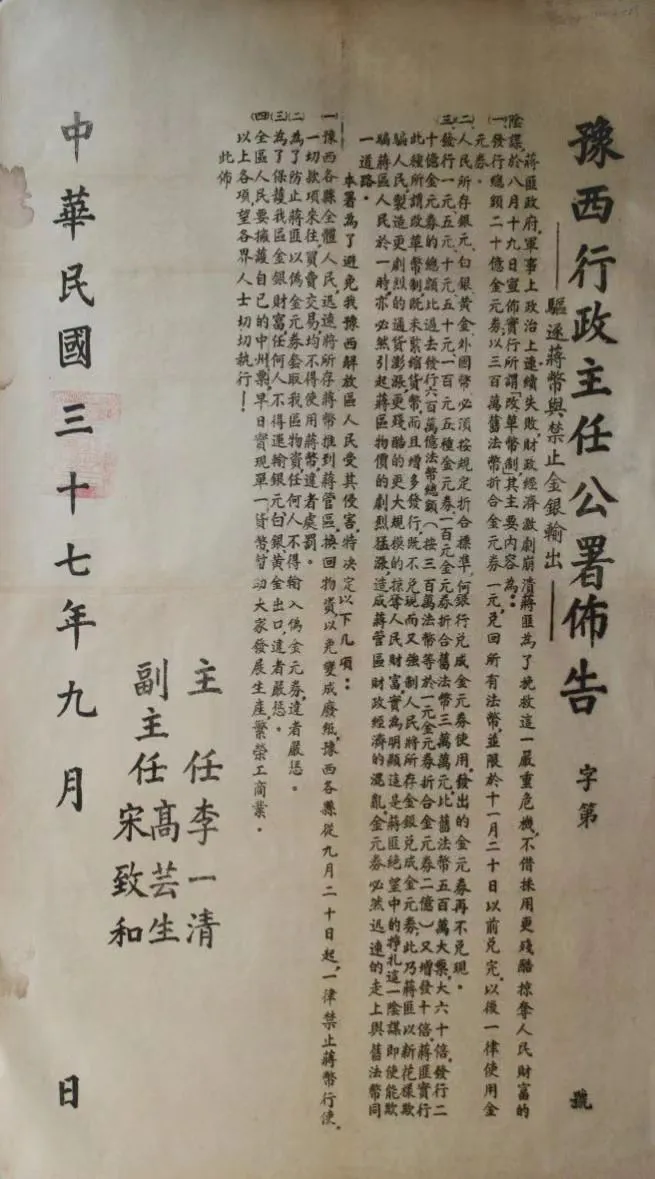 豫西行政主任公署佈告　字第　號
——驅逐蔣幣與禁止金銀輸出——
蔣匪政府，軍事上政治上連續失敗，財政經濟激劇崩潰，蔣匪為了挽救這一嚴重危機，不借採用更殘酷掠奪人民財富的
陰謀，於八月十九日宣佈實行所謂「改革幣制」，其主要內容為：
㈠發行總額二十億金元券，以三百萬舊法幣折合金元券一元，兌回所有法幣，並限於十一月二十日以前兌完，以後一律使用金
元券。
㈡人民所存銀元、白銀、黃金、外國幣必須按規定折合標準，何銀行兌成金元券使用，發出的金元券再不兌現。
㈢發行一元、五元、十元、五十元、一百元五種金元券，一百元金元券折合舊法幣三萬萬元，比舊法幣五百萬大票，大六十倍，發行二
十億金元券的總額比過去發行六百萬億法幣總額（按三百萬法幣等於一元金元券折合金元券二億）又增發十倍，蔣匪實行
此種所謂改革幣制既未緊縮貨幣，而且增多發行，既不兌現而又強制人民將所存金銀兌成金元券，此乃蔣匪以新花樣欺
騙人民，製造更劇烈的通貨膨漲，更殘酷的更大規模的掠奪人民財富，實為明顯這是蔣匪絕望中的掙扎，這一陰謀即使能欺
騙蔣區人民於一時，亦必然引起蔣區物價的劇烈猛漲，造成蔣管區財政經濟的混亂，金元券必然迅速的走上與舊法幣同
一道路。
本署為了避免我豫西解放區人民受其侵害，特決定以下几項：
㈠豫西各縣全體人民，迅速將所存蔣幣推到蔣管區，換回物資以免變成廢紙，豫西各縣從九月二十日起，一律禁止蔣幣行使，
一切款項來往，買賣交易，均不得使用蔣幣，違者處罰。
㈡為了防止蔣匪以偽金元券套取我區物資，任何人不得輸入偽金元券，違者嚴惩。
㈢為了保護我區金銀財富，任何人不得運輸銀元、白銀、黃金出口，違者嚴惩。
㈣全區人民要擁護自己的中州票，早日實現單一貨幣，幫助大家發展生產，繁榮工商業。
以上各項望各界人士切切執行！
此佈
主任李一清
副主任高芸生
宋致和
中華民國三十七年九月　日